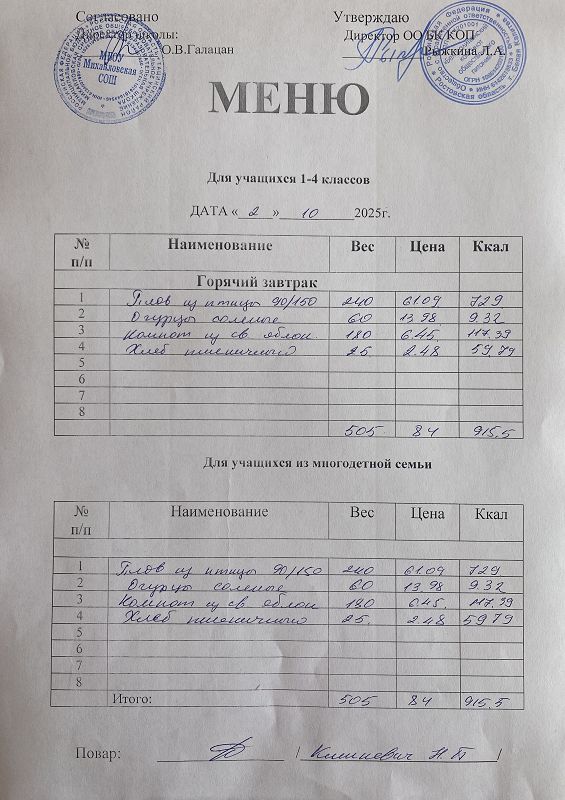 Согласовано Утверждаю
Директор школы: Директор ООО БК КОП
О.В.Галацан Рыжкина Л.А.
МБОУ
Михайловская
СОШ
МЕНЮ
Для учащихся 1-4 классов
ДАТА « 2 » 10 2025г.
№ п/п Наименование Вес Цена Ккал
Горячий завтрак
1 Плов из птицы 90/150 240 61.09 729
2 Огурцы соленые 60 13.98 9.32
3 Компот из св. яблок 180 6.45 117.39
4 Хлеб пшеничного 25 2.48 59.79
5
6
7
8
505 84 915.5
Для учащихся из многодетной семьи
№ п/п Наименование Вес Цена Ккал
1 Плов из птицы 90/150 240 61.09 729
2 Огурцы соленые 60 13.98 9.32
3 Компот из св яблок 180 6.45 117.39
4 Хлеб пшеничного 25 2.48 59.79
5
6
7
8
Итого: 505 84 915.5
Повар: / Климкевич Н.П /